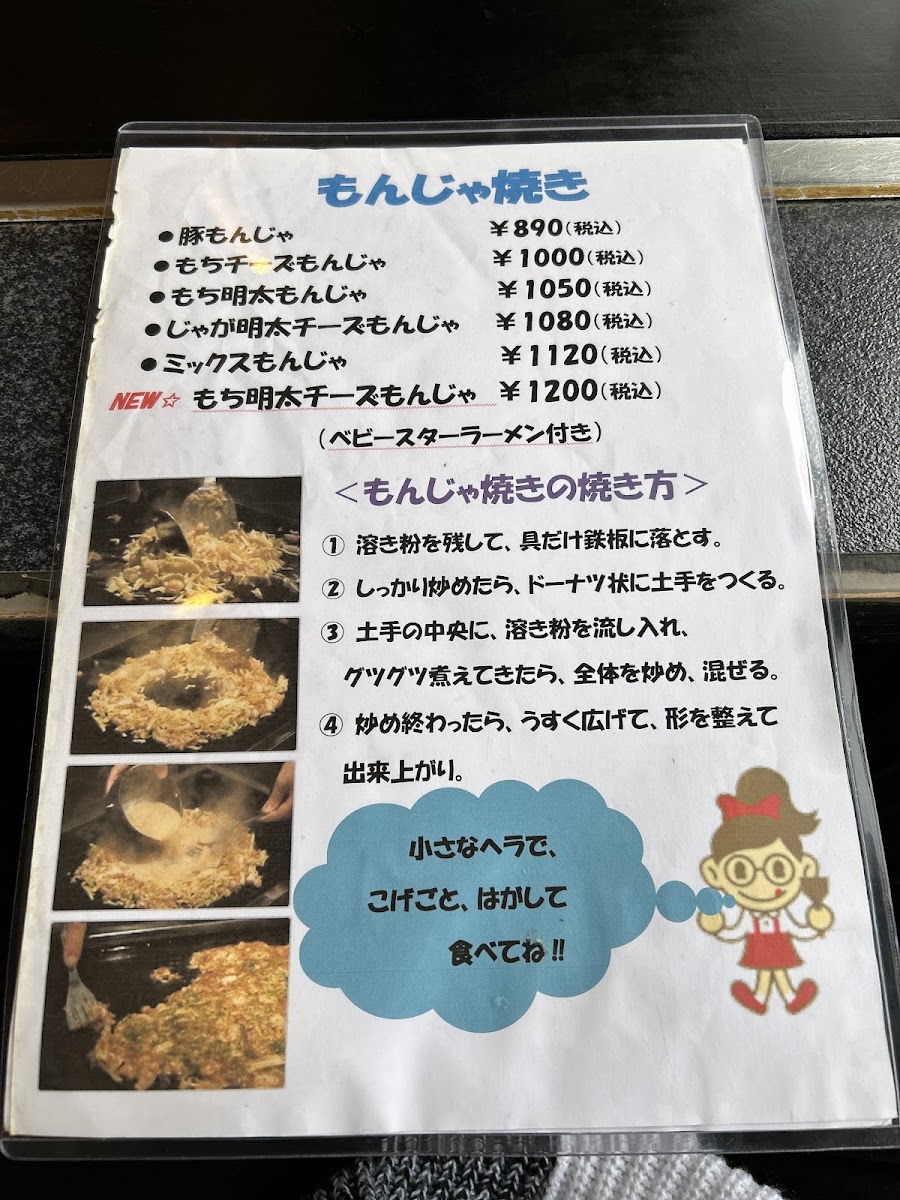 もんじゃ焼き
●豚もんじゃ ￥890(税込)
●もちチーズもんじゃ ￥1000(税込)
●もち明太もんじゃ ￥1050(税込)
●じゃが明太チーズもんじゃ ￥1080(税込)
●ミックスもんじゃ ￥1120(税込)
NEW☆ もち明太チーズもんじゃ ￥1200(税込)
(ベビースターラーメン付き)
＜もんじゃ焼きの焼き方＞
① 溶き粉を残して、具だけ鉄板に落とす。
② しっかり炒めたら、ドーナツ状に土手をつくる。
③ 土手の中央に、溶き粉を流し入れ、
グツグツ煮えてきたら、全体を炒め、混ぜる。
④ 炒め終わったら、うすく広げて、形を整えて
出来上がり。
小さなヘラで、
こげごと、はがして
食べてね!!